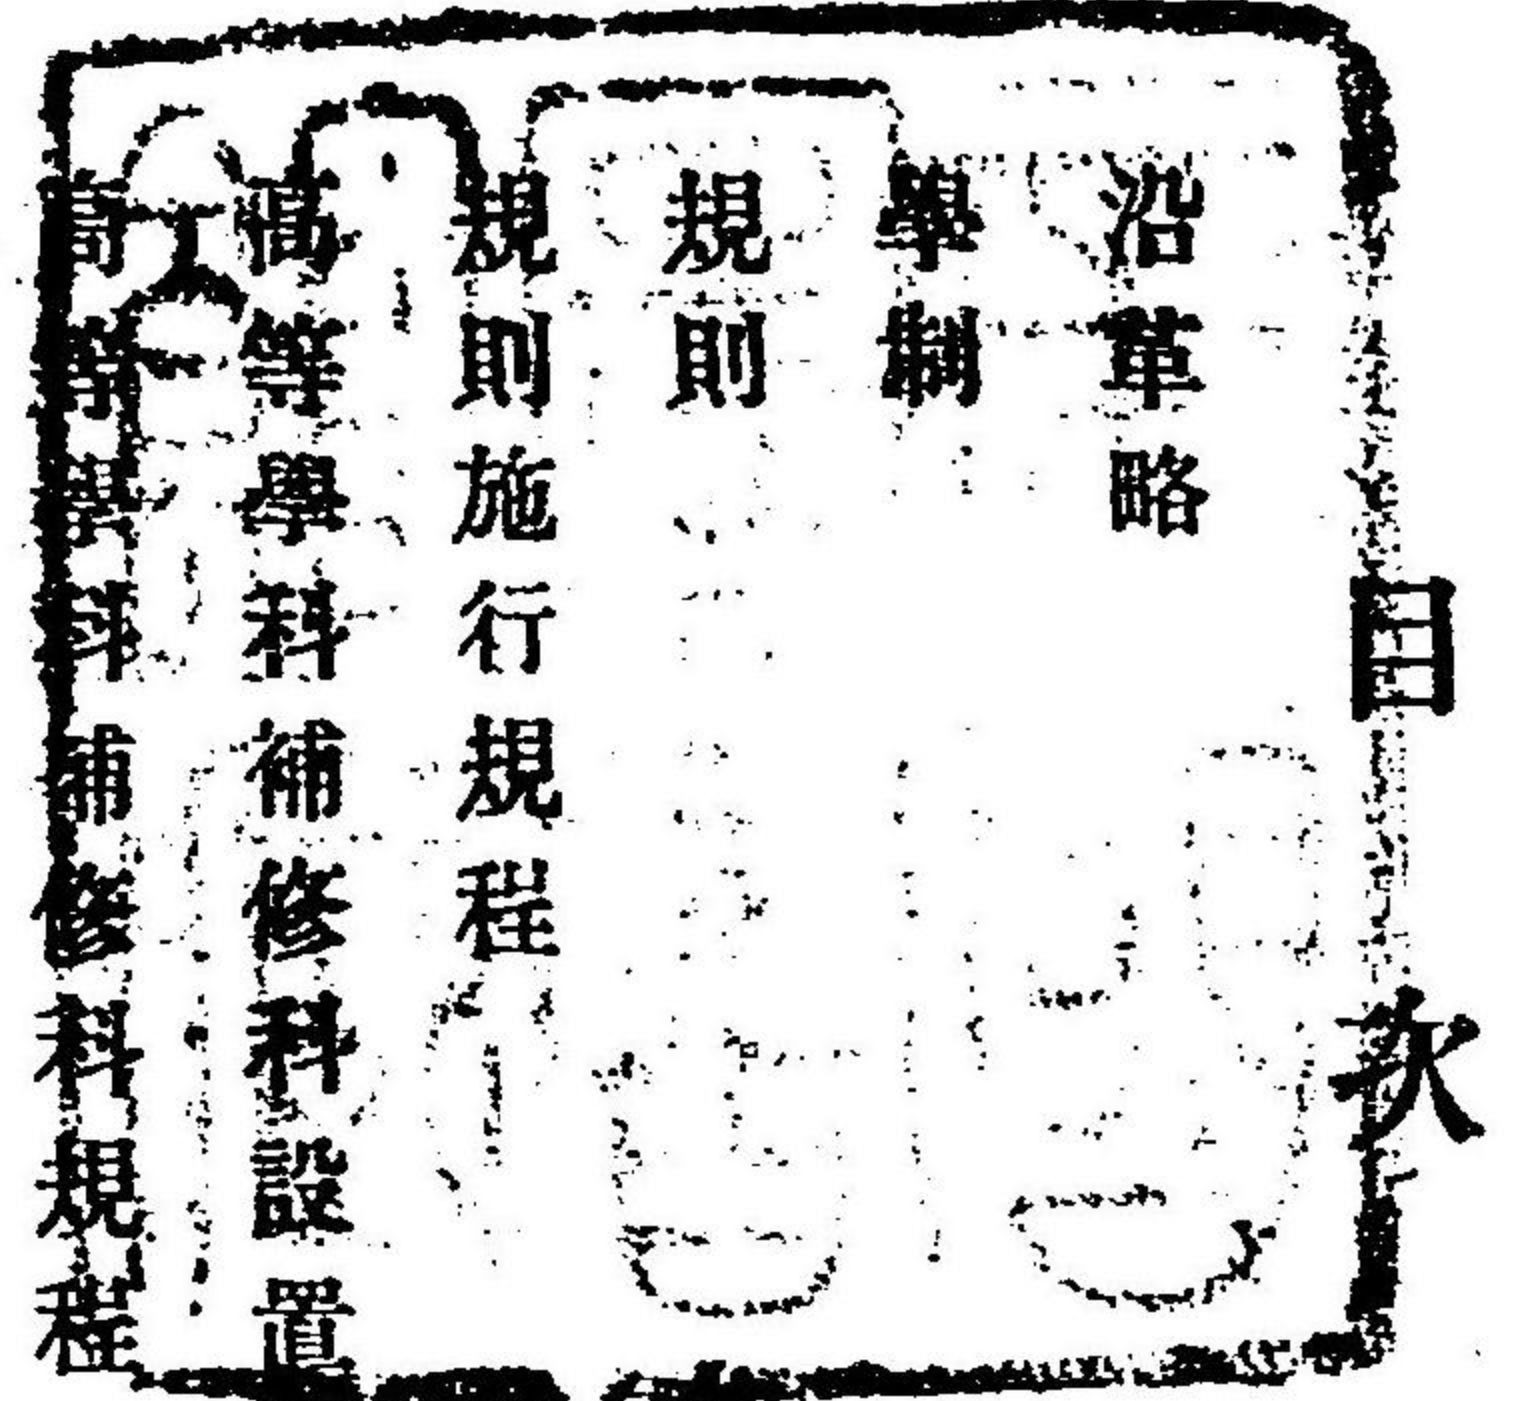 目次
沿革略
學制
規則
規則施行規程
高等學科補修科設置
高等學科補修科規程